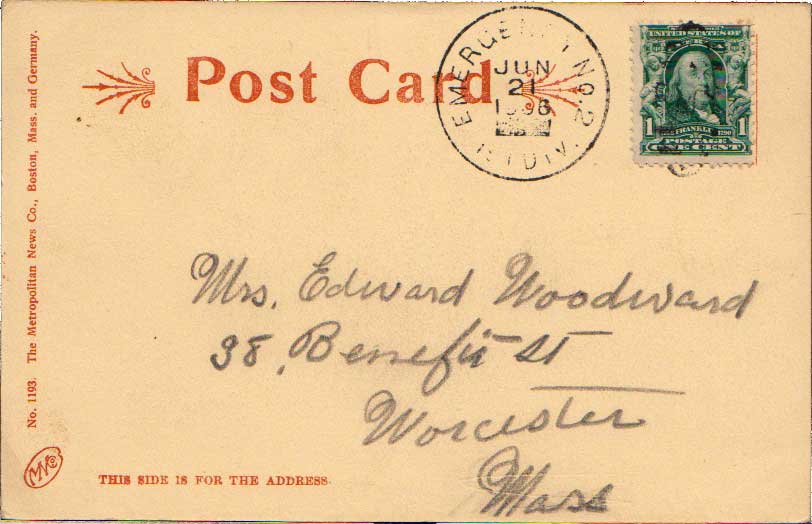 Post Card
EMERGENCY NO. 2
JUN
21
1906
DIV.
UNITED STATES OF
1 FRANKLIN 1790 1
POSTAGE
ONE CENT
Mrs. Edward Woodward
38, Benefit St
Worcester
Mass
No. 1193. The Metropolitan News Co., Boston, Mass. and Germany.
MN Co
THIS SIDE IS FOR THE ADDRESS.